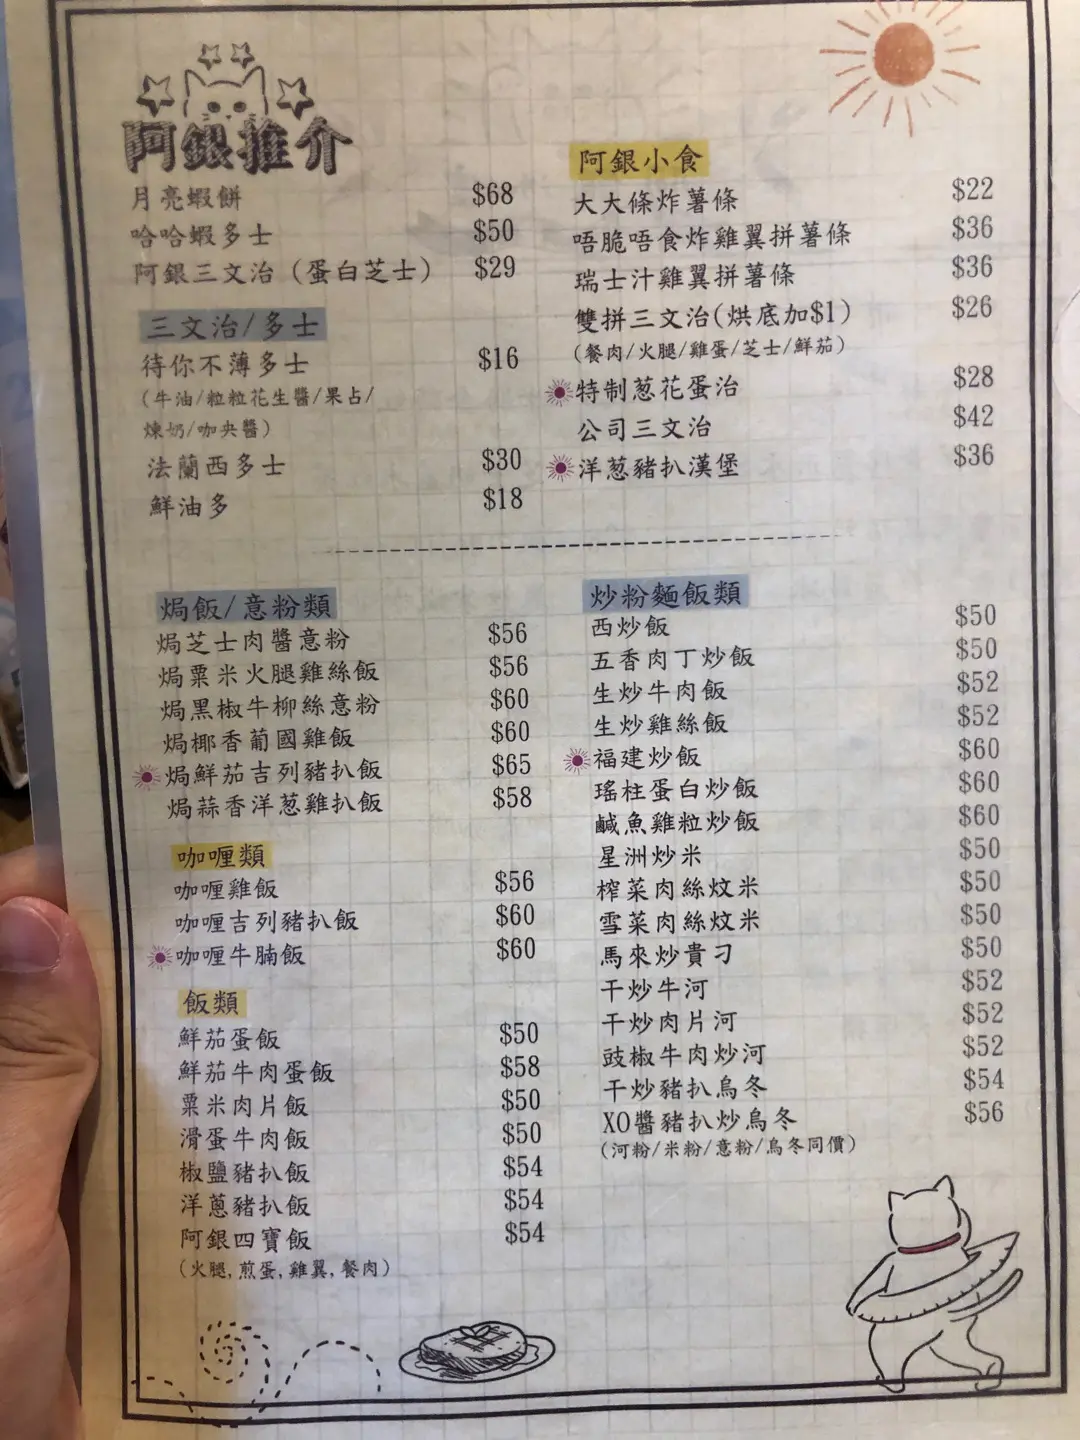 阿銀推介
月亮蝦餅 $68
哈哈蝦多士 $50
阿銀三文治（蛋白芝士） $29
三文治/多士
待你不薄多士 $16
（牛油/粒粒花生醬/果占/
煉奶/咖央醬）
法蘭西多士 $30
鮮油多 $18
阿銀小食
大大條炸薯條 $22
唔脆唔食炸雞翼拼薯條 $36
瑞士汁雞翼拼薯條 $36
雙拼三文治(烘底加$1) $26
（餐肉/火腿/雞蛋/芝士/鮮茄）
特制葱花蛋治 $28
公司三文治 $42
洋葱豬扒漢堡 $36
焗飯/意粉類
焗芝士肉醬意粉 $56
焗粟米火腿雞絲飯 $56
焗黑椒牛柳絲意粉 $60
焗椰香葡國雞飯 $60
焗鮮茄吉列豬扒飯 $65
焗蒜香洋葱雞扒飯 $58
咖喱類
咖喱雞飯 $56
咖喱吉列豬扒飯 $60
咖喱牛腩飯 $60
飯類
鮮茄蛋飯 $50
鮮茄牛肉蛋飯 $58
粟米肉片飯 $50
滑蛋牛肉飯 $50
椒鹽豬扒飯 $54
洋蔥豬扒飯 $54
阿銀四寶飯 $54
（火腿,煎蛋,雞翼,餐肉）
炒粉麵飯類
西炒飯 $50
五香肉丁炒飯 $50
生炒牛肉飯 $52
生炒雞絲飯 $52
福建炒飯 $60
瑤柱蛋白炒飯 $60
鹹魚雞粒炒飯 $60
星洲炒米 $50
榨菜肉絲炆米 $50
雪菜肉絲炆米 $50
馬來炒貴刁 $50
干炒牛河 $52
干炒肉片河 $52
豉椒牛肉炒河 $52
干炒豬扒烏冬 $54
XO醬豬扒炒烏冬 $56
（河粉/米粉/意粉/烏冬同價）